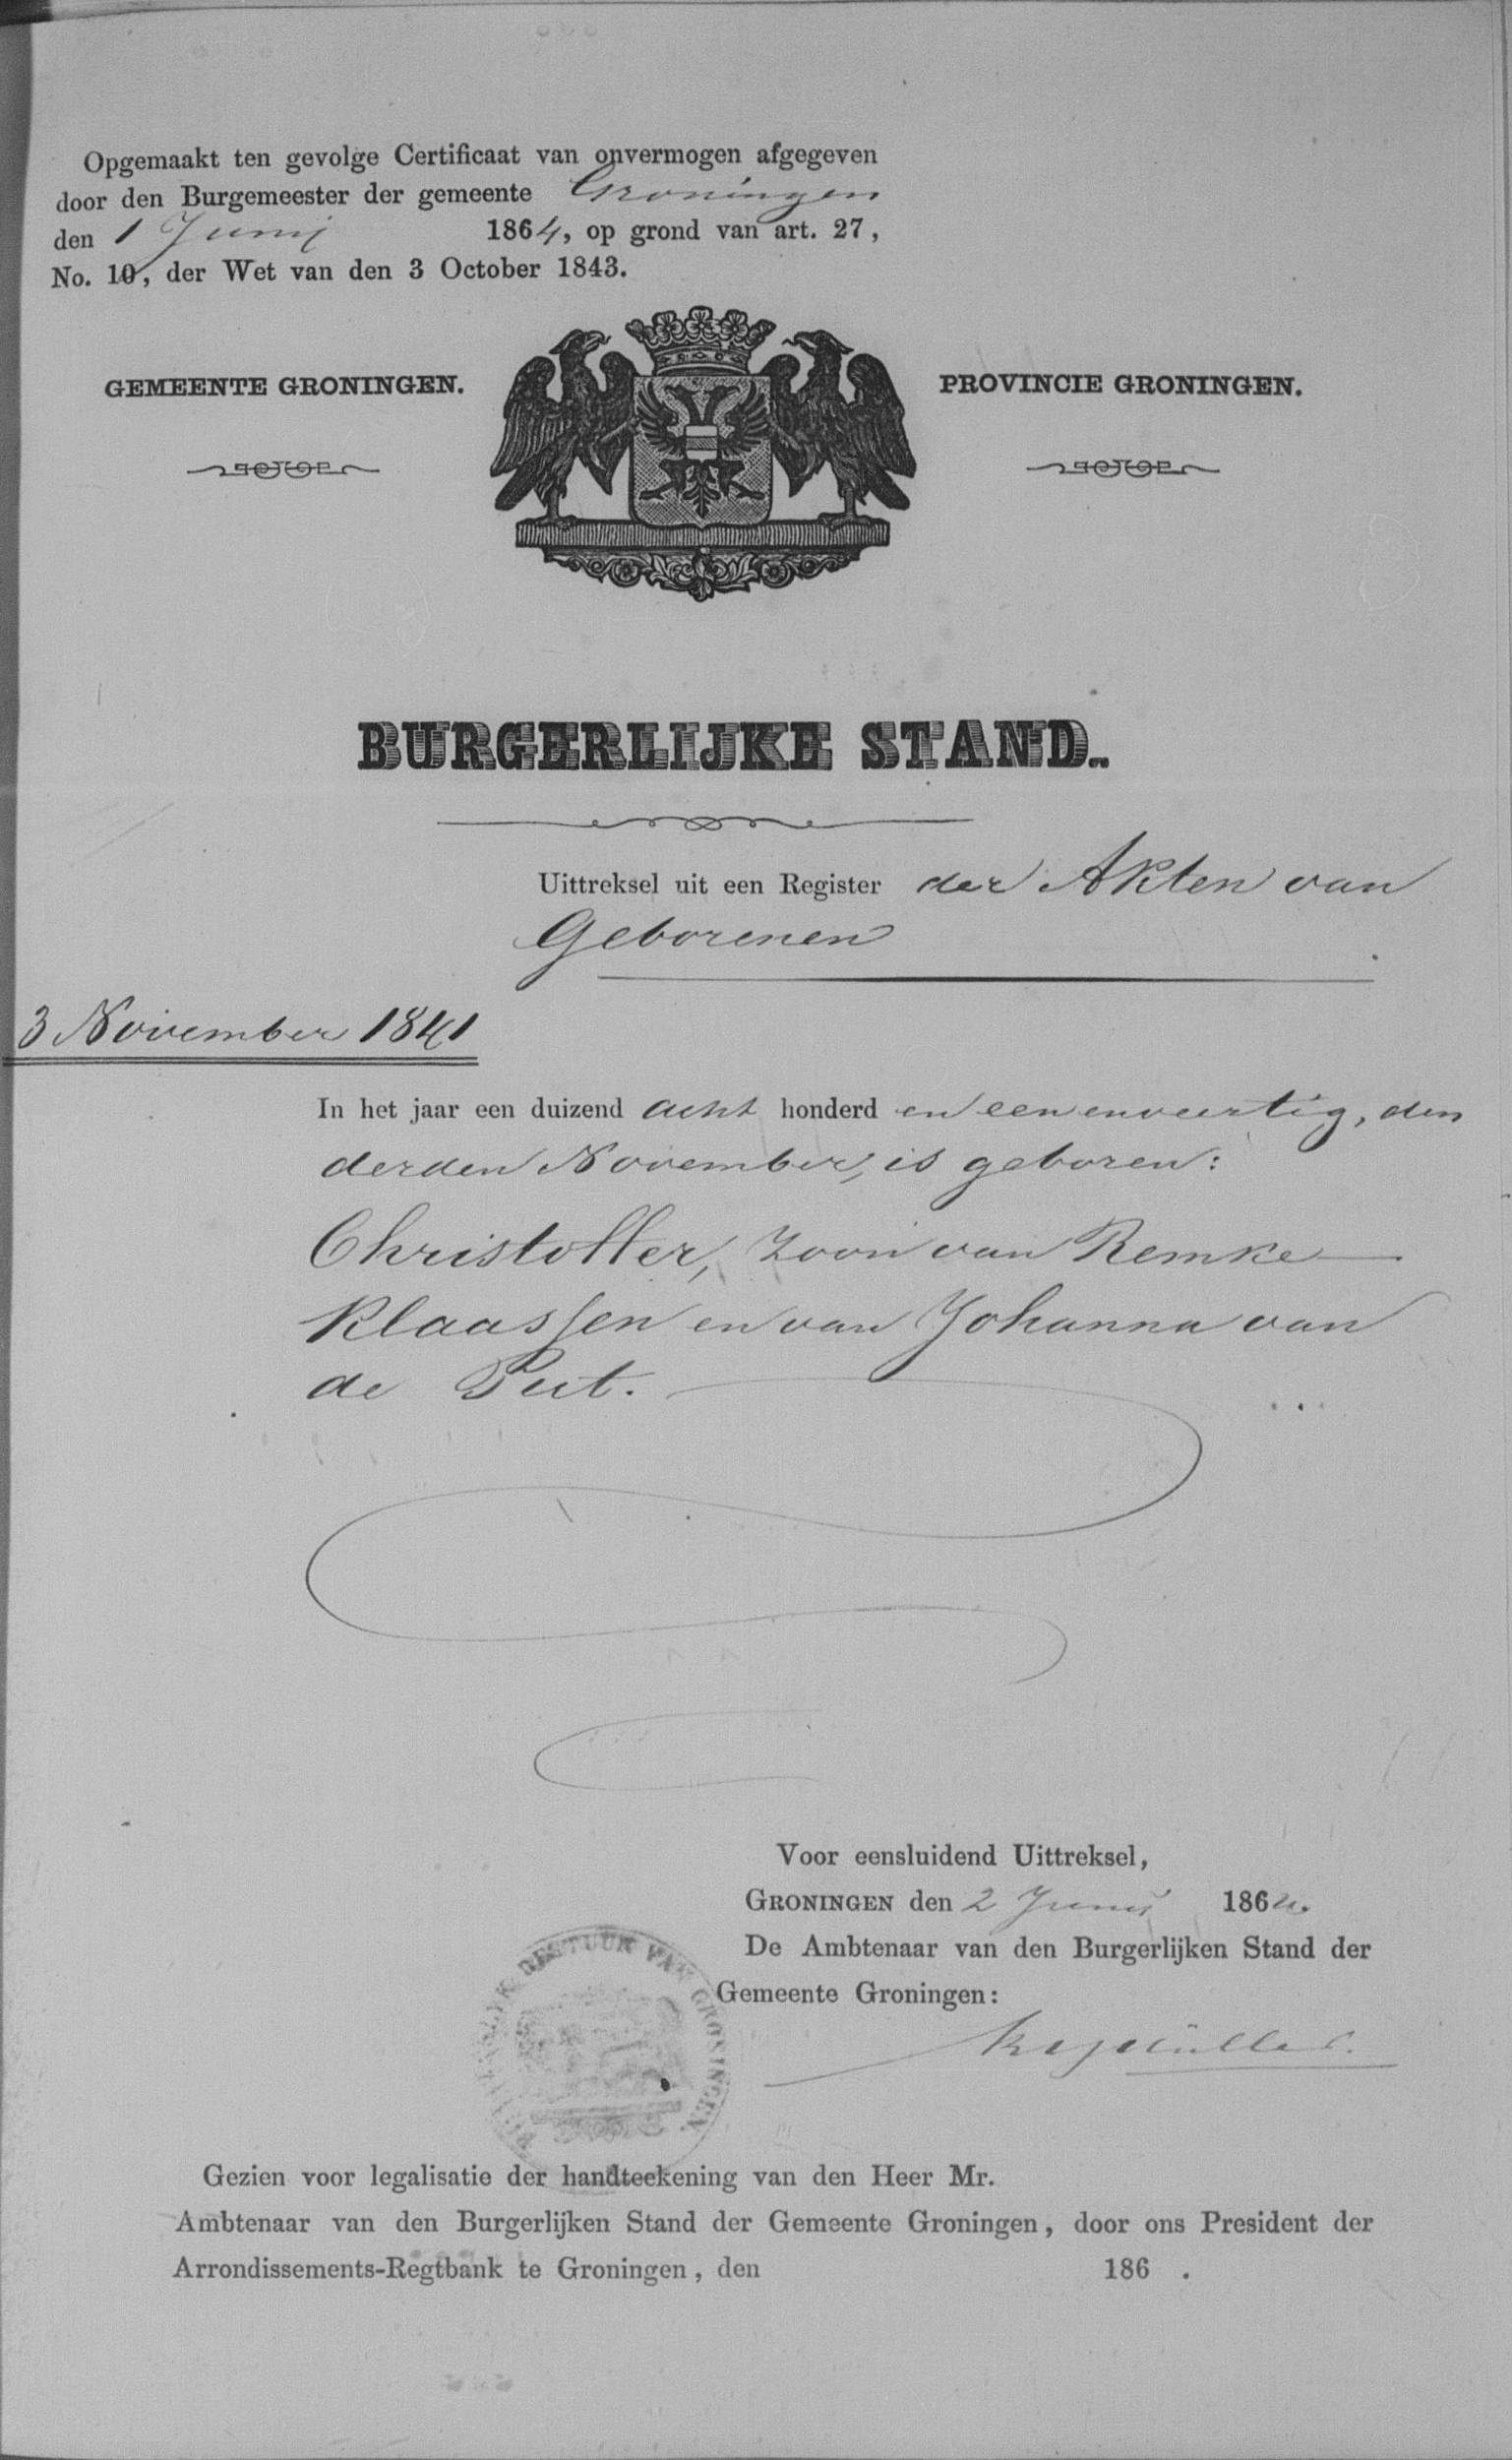 Opgemaakt ten gevolge Certificaat van onvermogen afgegeven
door den Burgemeester der gemeente Groningen
den 1 Junij 1864, op grond van art. 27,
No. 10, der Wet van den 3 October 1843.
GEMEENTE GRONINGEN.
PROVINCIE GRONINGEN.
BURGERLIJKE STAND.
Uittreksel uit een Register der Akten van
Geborenen
3 November 1841
In het jaar een duizend acht honderd en een en veertig, den
derden November, is geboren:
Christoffer, zoon van Remke
Klaassen en van Johanna van
de Put.
Voor eensluidend Uittreksel,
GRONINGEN den 2 Junij 1864.
De Ambtenaar van den Burgerlijken Stand der
Gemeente Groningen:
BESTUUR VAN GRONINGEN
Gezien voor legalisatie der handteekening van den Heer Mr.
Ambtenaar van den Burgerlijken Stand der Gemeente Groningen, door ons President der
Arrondissements-Regtbank te Groningen, den 186 .